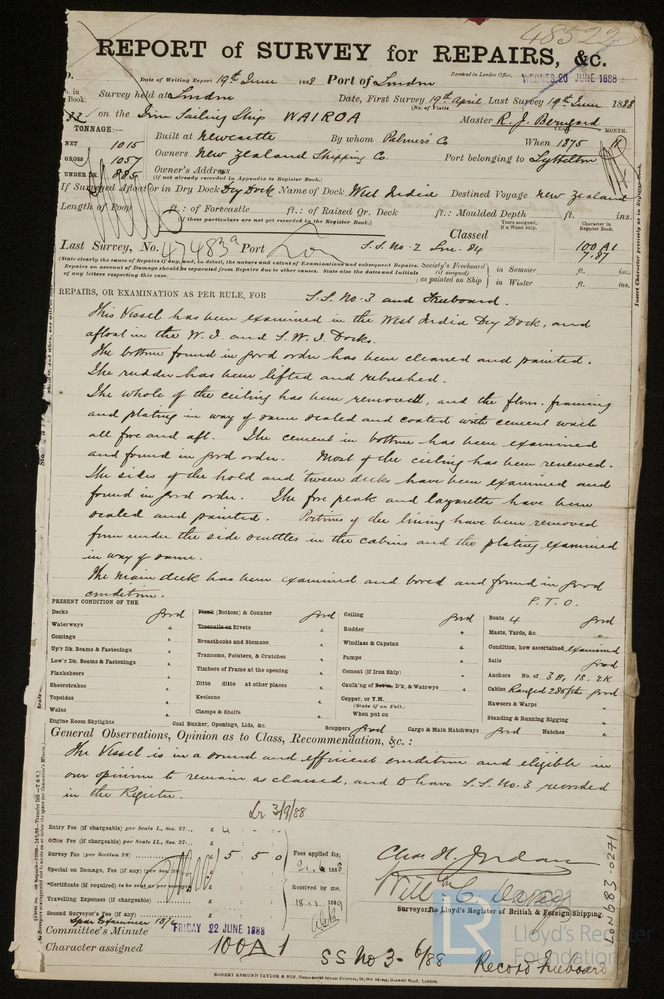 48522
REPORT of SURVEY for REPAIRS, &c.
Date of Writing Report 19th June 1888 Port of London
Received in London Office, WEDNES. 20 JUNE 1888
Survey held at London Date, First Survey 19th April Last Survey 19th June 1888
(No. of Visits
on the Iron Sailing Ship WAIROA Master R. J.
TONNAGE:—
NET 1015
GROSS 1057
UNDER DK. 885
Built at Newcastle By whom Palmers' Co When 1875
YEAR. MONTH.
Owners New Zealand Shipping Co. Port belonging to Lyttelton
Owner's Address
(if not already recorded in Appendix to Register Book.)
If Surveyed Afloat or in Dry Dock Dry Dock Name of Dock West India Destined Voyage New Zealand
Length of Poop ft.: of Forecastle ft.: of Raised Qr. Deck ft.: Moulded Depth ft. ins.
(If these particulars are not yet recorded in the Register Book.)
Classed
Years assigned, if a Wood Ship.
Character in Register Book.
Last Survey, No. 47483a Port Lon S.S. No. 2 Lon. 84 100 A1
7.87
(State clearly the cause of Repairs if any, and, in detail, the nature and extent of Examinations and subsequent Repairs.
Repairs on account of Damage should be separated from Repairs due to other causes. State also the dates and initials
of any letters respecting this case.
Society's Freeboard (if assigned) as painted on Ship
in Summer ft. ins.
in Winter ft. ins.
Insert Character precisely as in Register Book.
REPAIRS, OR EXAMINATION AS PER RULE, FOR S.S. No. 3 and Freeboard.
This Vessel has been examined in the West India Dry Dock, and
afloat in the W. I. and S. W. I. Docks.
The bottom found in good order has been cleaned and painted.
The rudder has been lifted and rebushed.
The whole of the ceiling has been removed, and the floors, framing
and plating in way of same scaled and coated with cement wash
all fore and aft. The cement in bottom has been examined
and found in good order. Most of the ceiling has been renewed.
The sides of the hold and 'tween decks have been examined and
found in good order. The fore peak and lazarette have been
scaled and painted. Portions of the lining have been removed
from under the side scuttles in the cabins and the plating examined
in way of same.
The main deck has been examined and bored and found in good
condition. P.T.O.
PRESENT CONDITION OF THE
Decks good
Waterways "
Comings "
Up'r Dk. Beams & Fastenings "
Low'r Dk. Beams & Fastenings "
Planksheers "
Sheerstrakes "
Topsides "
Wales "
Engine Room Skylights
Plank (Bottom) & Counter good
Treenails or Rivets "
Breasthooks and Stemson "
Transoms, Pointers, & Crutches "
Timbers of Frame at the opening "
Ditto ditto at other places "
Keelsons "
Clamps & Shelfs "
Coal Bunker, Openings, Lids, &c.
Ceiling good
Rudder "
Windlass & Capstan "
Pumps "
Cement (if Iron Ship) "
Caulk'ng of Bottm. D'k, & Waterwys "
Copper, or Y.M.
(State if on Felt.)
When put on
Scuppers good Cargo & Main Hatchways good Hatches "
Boats 4 good
Masts, Yards, &c. "
Condition, how ascertained examined
Sails good
Anchors No. of 3 B, 1 S. 2 K
Cables Ranged good
Hawsers & Warps "
Standing & Running Rigging "
General Observations, Opinion as to Class, Recommendation, &c. :
The Vessel is in a sound and efficient condition and eligible in
our opinion to remain as classed, and to have S.S. No. 3 recorded
in the Register.
Lr 3/9/88
Entry Fee (if chargeable) per Scale I., Sec. 27... £ 4
Office Fee (if chargeable) per Scale II., Sec. 27... £
Survey Fee (per Section 28) £ 5 5 0
Special on Damage, Fee (if any) (per Sec. 28) £
*Certificate (if required) to be sent as per margin £
Travelling Expenses (if chargeable) £
Second Surveyor's Fee (if any) £
Fees applied for,
Received by me,
Chas. H. Jordan
Surveyor to Lloyd's Register of British & Foreign Shipping.
Committee's Minute FRIDAY 22 JUNE 1888
Character assigned 100A1
SS No 3- 6/88 Record Freeboard
ROBERT EDMUND TAYLOR & SON,
LON983-0271
LR
© 2021
Lloyd's Register
Foundation